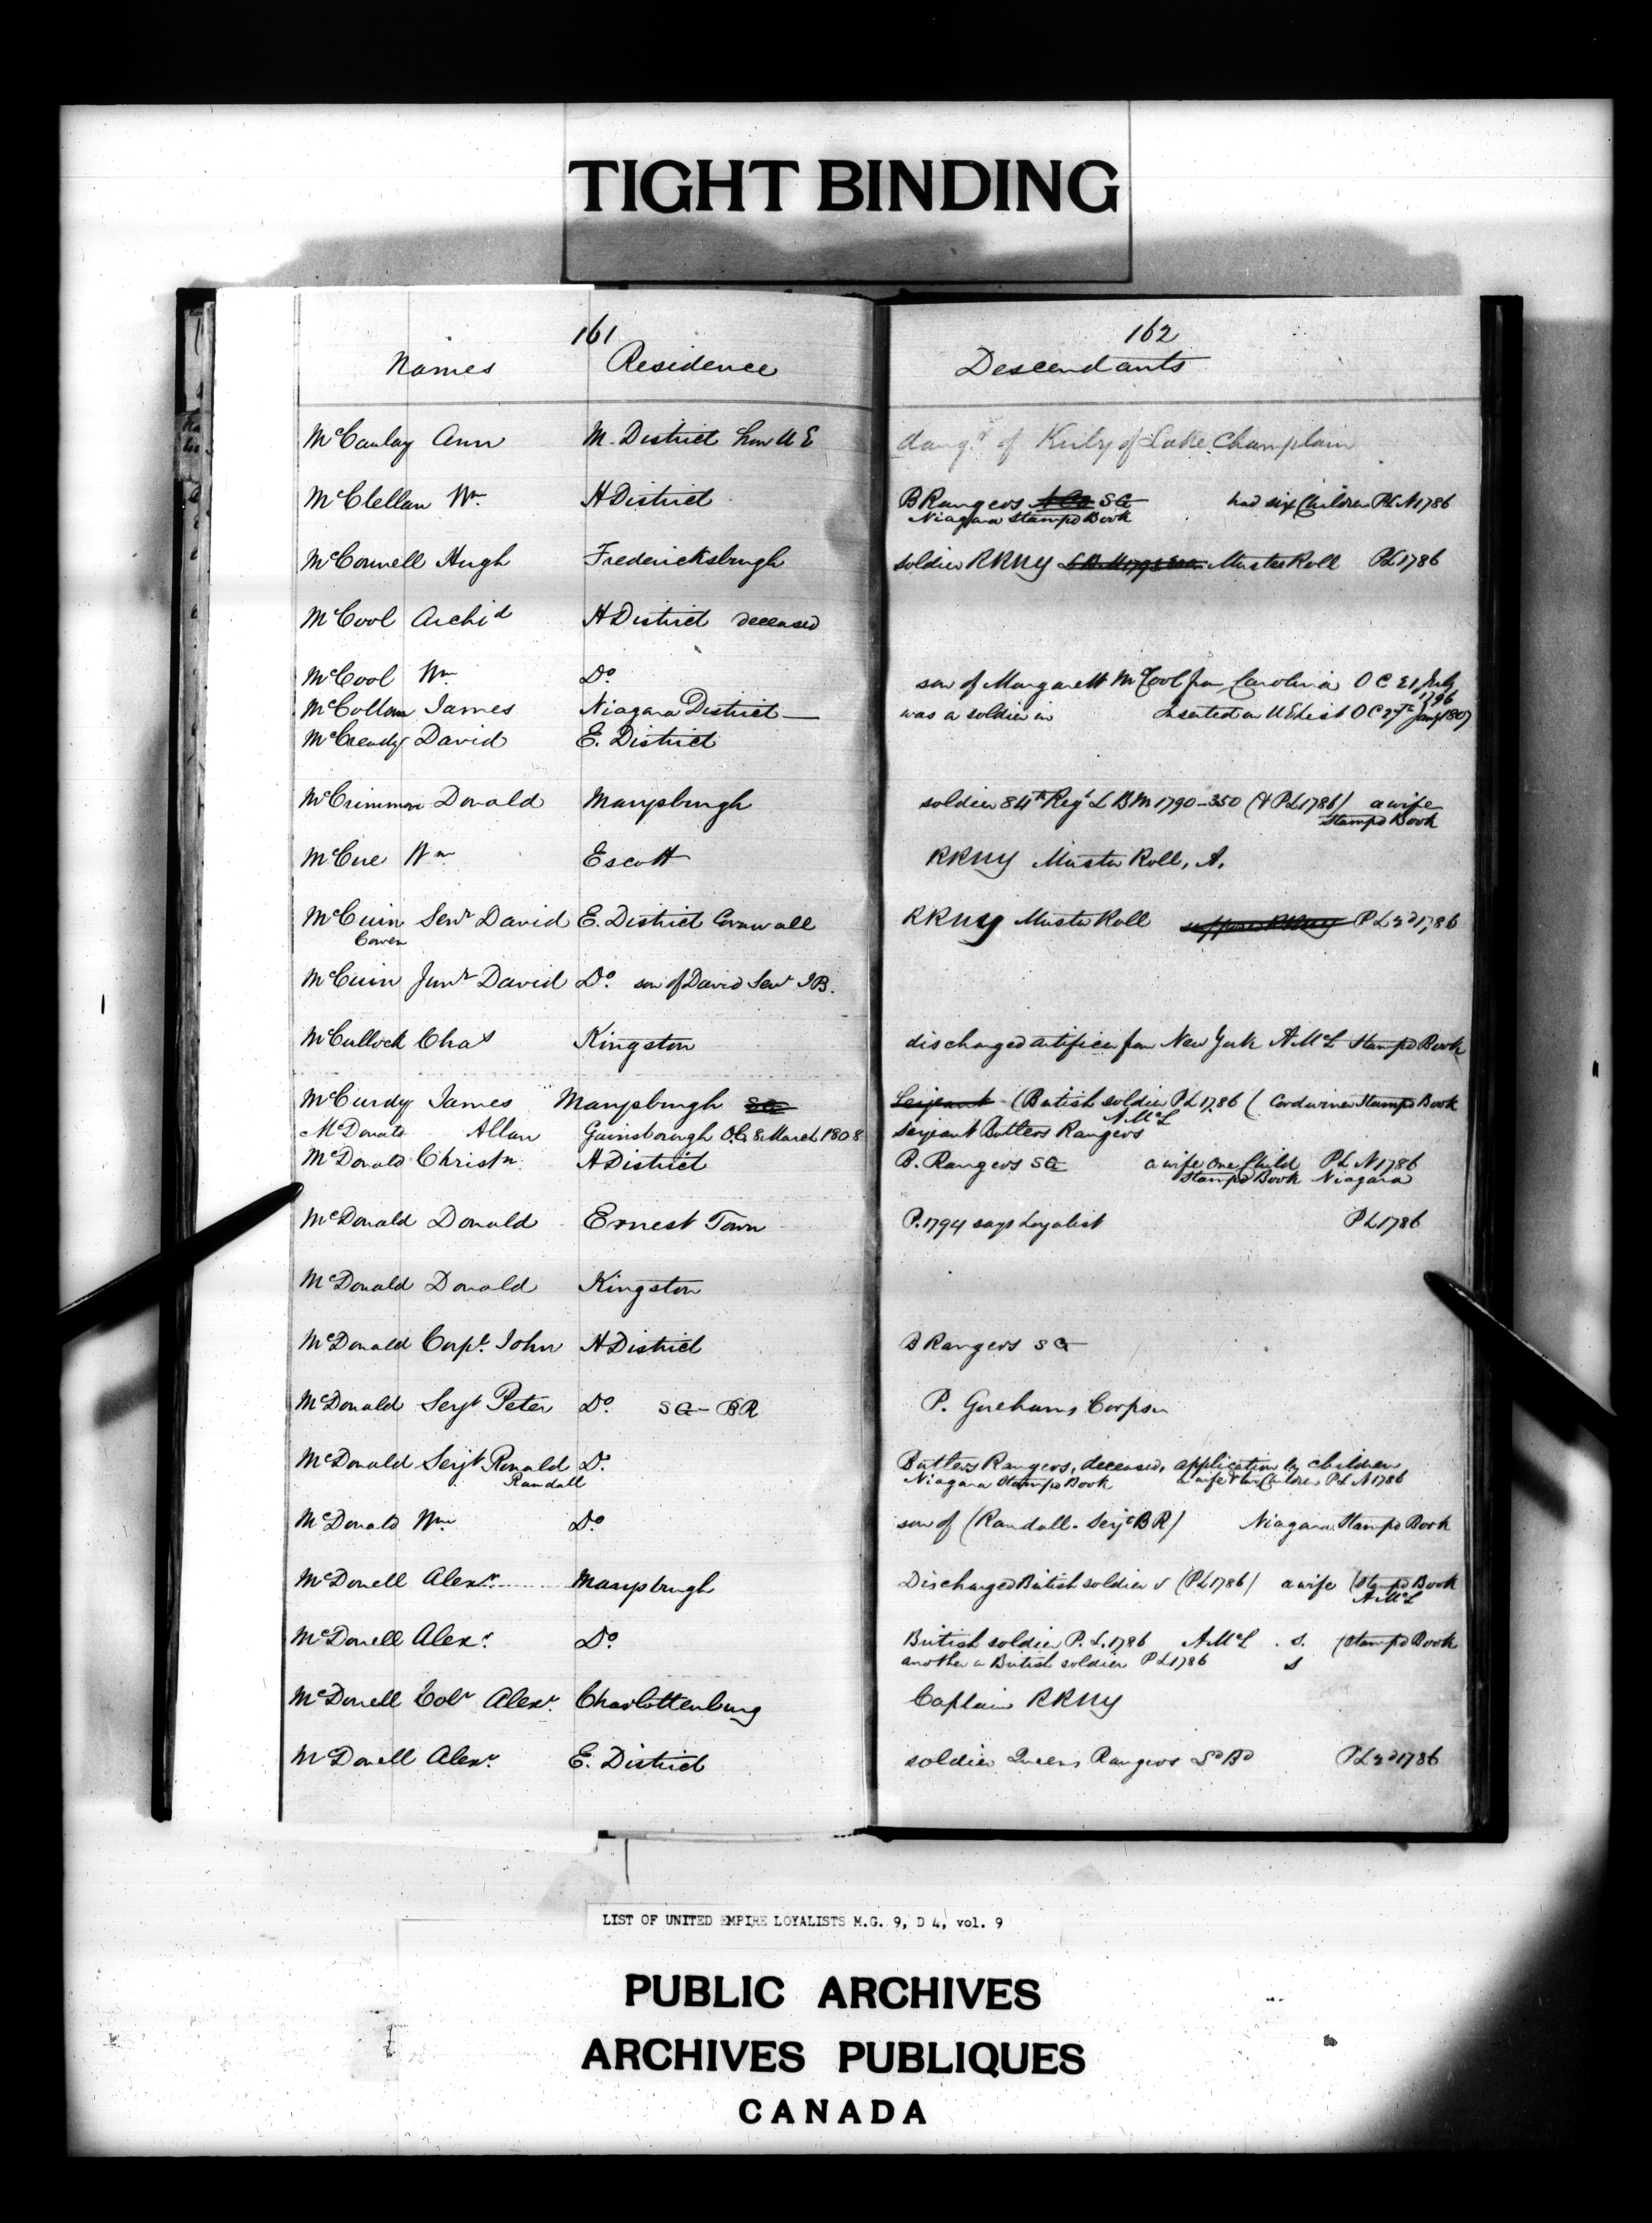 TIGHT BINDING
161
162
Names Residence Descendants
McCaulay Ann M. District U E daugr of Kirby of Lake Champlain
McClellan Wm H District B Rangers SG had six Children PL N 1786
Niagara Stampd Book
McConnell Hugh Fredericksburgh soldier RRNY Muster Roll PL 1786
McCool Archid H District deceased
McCool Wm Do son of Margarett McCool from Carolina O C 21 July 1796
McCollom James Niagara District was a soldier in Inserted on U E List O C 27th Jany 1807
McCready David E. District
McCrimmon Donald Marysburgh soldier 84th Regt L B M 1790-350 (& PL 1786) a wife
Stampd Book
McCue Wm Escott RRNY Muster Roll, A.
McCuin Senr David E. District Cornwall RRNY Muster Roll suppose RRNY P L 2d 1786
Cowen
McCuin Junr David Do. son of David Senr I B.
McCulloch Chas Kingston discharged artificer from New York A McL Stampd Book
McCurdy James Marysburgh SG Serjeant (British soldier PL 1786 ( Cordwiner Stampd Book
A McL
McDonald Allan Gainsborough O.C. 8 March 1808 serjeant Butlers Rangers
McDonald Christn H District B. Rangers SG a wife One Child PL N 1786
Stampd Book Niagara
McDonald Donald Ernest Town P. 1794 says Loyalist PL 1786
McDonald Donald Kingston
McDonald Corpl. John H District B Rangers S G
McDonald Serjt Peter Do. S G - BR P. Gorehams Corps
McDonald Serjt Ronald Do. Butlers Rangers, deceased, application by children
Randall Niagara Stampd Book a wife & two Children PL N 1786
McDonald Wm Do son of (Randall - Serjt BR) Niagara Stampd Book
McDonell Alexr. Marysburgh Discharged British soldier (PL 1786) a wife (Stampd Book
A McL
McDonell Alexr. Do. British soldier P. L. 1786 A McL . S. (Stampd Book
another a British soldier PL 1786 S
McDonell Colr Alexr. Charlottenburg Captain RRNY
McDonell Alexr. E. District soldier Queens Rangers PL 2d 1786
LIST OF UNITED EMPIRE LOYALISTS M.G. 9, D 4, vol. 9
PUBLIC ARCHIVES
ARCHIVES PUBLIQUES
CANADA